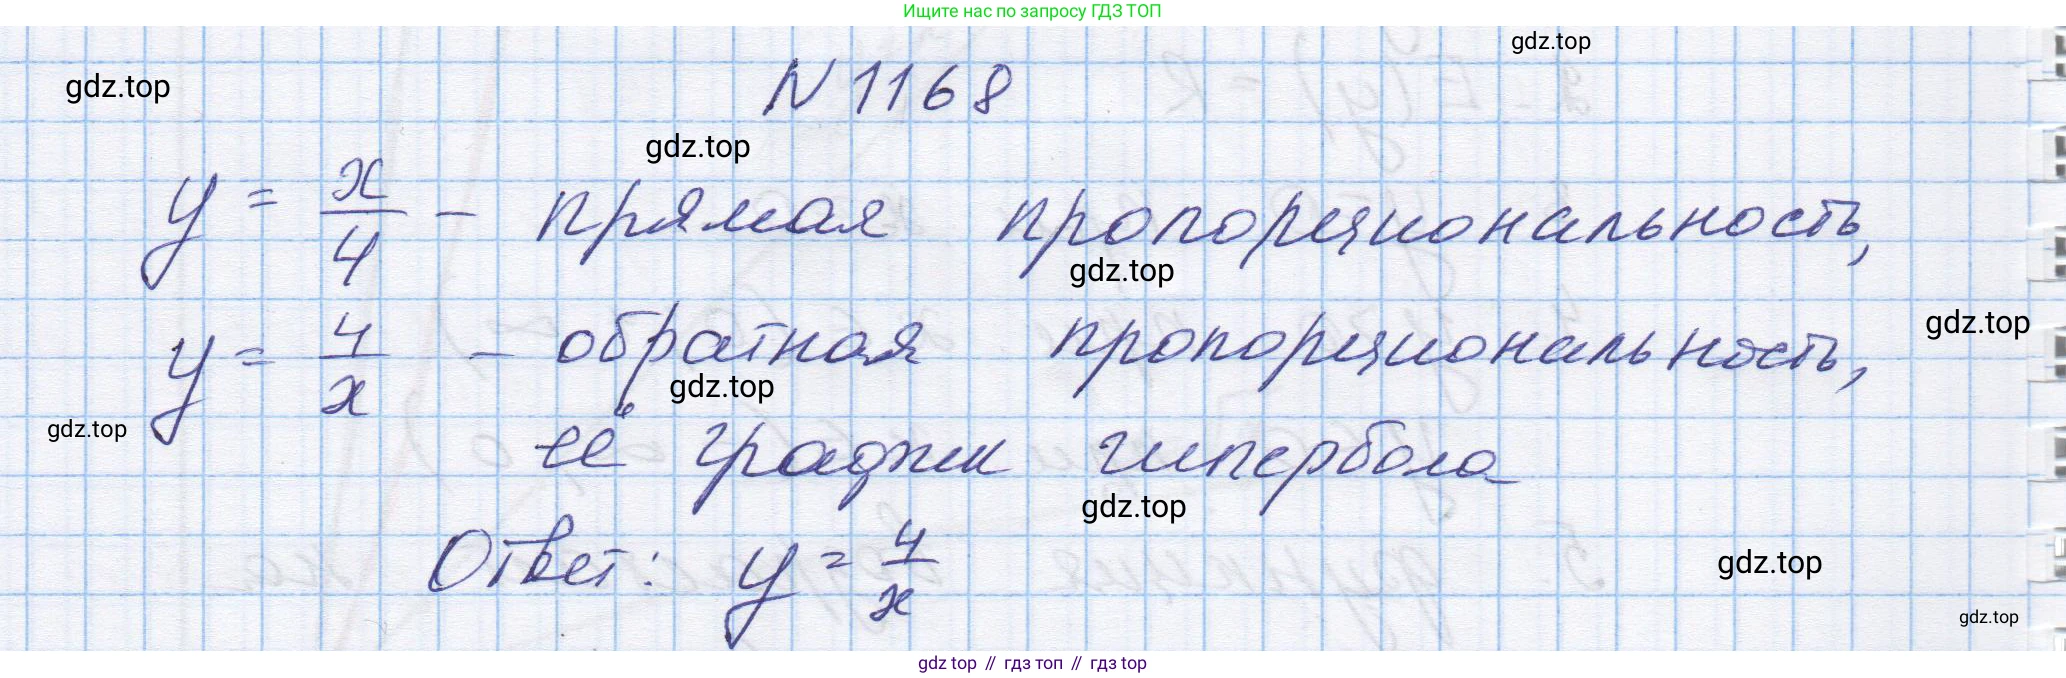 Ищите нас по запросу ГДЗ ТОП
gdz.top
gdz.top
N 1168
gdz.top
y = x/4 - прямая пропорциональность,
gdz.top
gdz.top
y = 4/x - обратная пропорциональность,
gdz.top
gdz.top
её график гипербола
gdz.top
Ответ: y = 4/x
gdz.top
gdz.top
gdz top // гдз топ // гдз top